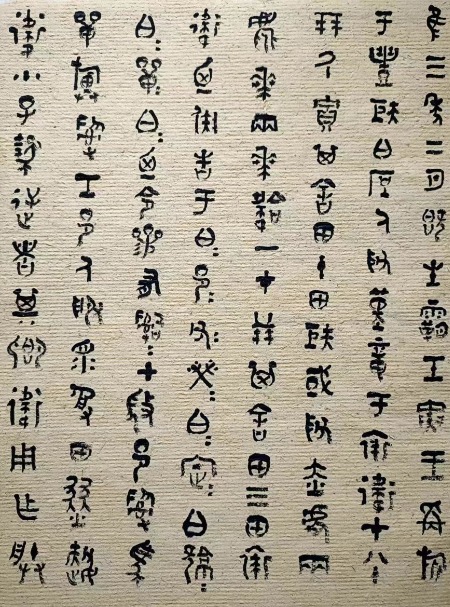 隹三年三月既生霸壬寅王爯旂
于豐矩白庶人取堇章于裘衛才八十
朋氒賈其舍田十田矩或取赤虎兩
麀𠦪兩𠦪韐一才廿朋其舍田三田裘
衛乃告于白邑父榮白定白
白單白乃令參有司司土微邑司馬
單旟司工邑人服眔受田燹趞
衛小子逆者其鄉衛用乍朕